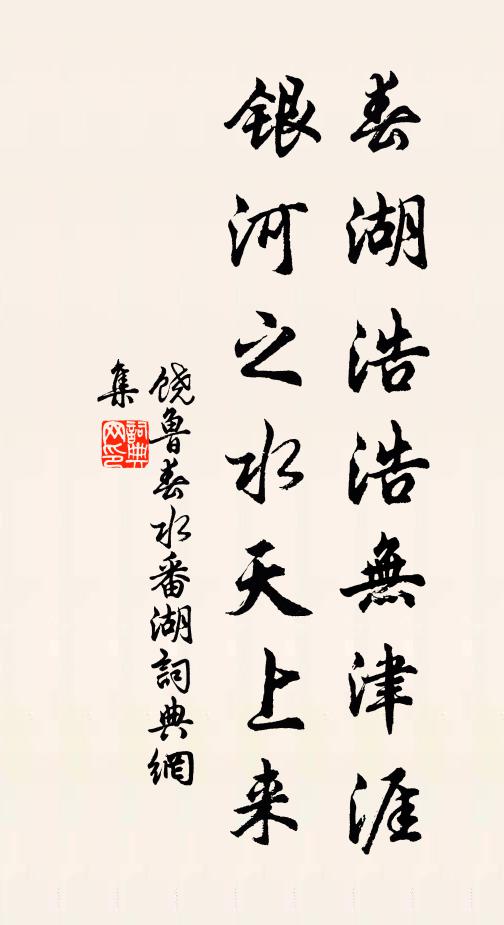 春湖浩浩無津涯
銀河之水天上来
饶鲁春水番湖詞典網
集
詞典
网印